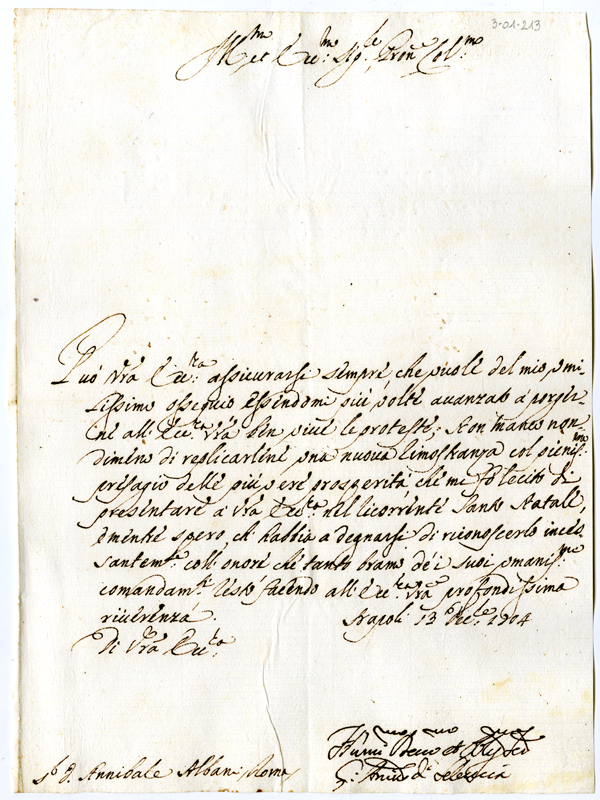 3-01-213
Ill.mo et Ecc.mo Sig.re Pron Col.mo
Può vra Ecc.za assicurarsi sempre che vuole del mio umi
lissimo ossequio essendomi più volte avanzato a porger
ne all'Ecc.za vra ben vive le proteste; Non manco non
dimeno di replicarline una nuova timostranza col pieniss.mo
presagio delle più vere prosperità, che mi fo lecito di
presentare à vra Ecc.za nel licorrente Santo Natale,
e mentre spero, ch habbia a degnarsi di riconoscerlo inces
santem.te coll'onore che tanto bramo de i suoi umanis.mi
comandam.ti resto facendo all'Ecc.za vra profondissima
riverenza.
Napoli 13 Dec.re 1704
Di vra Ecc.za
S.r D. Annibale Albani Roma
Hum.mo Devo et Obl Ser